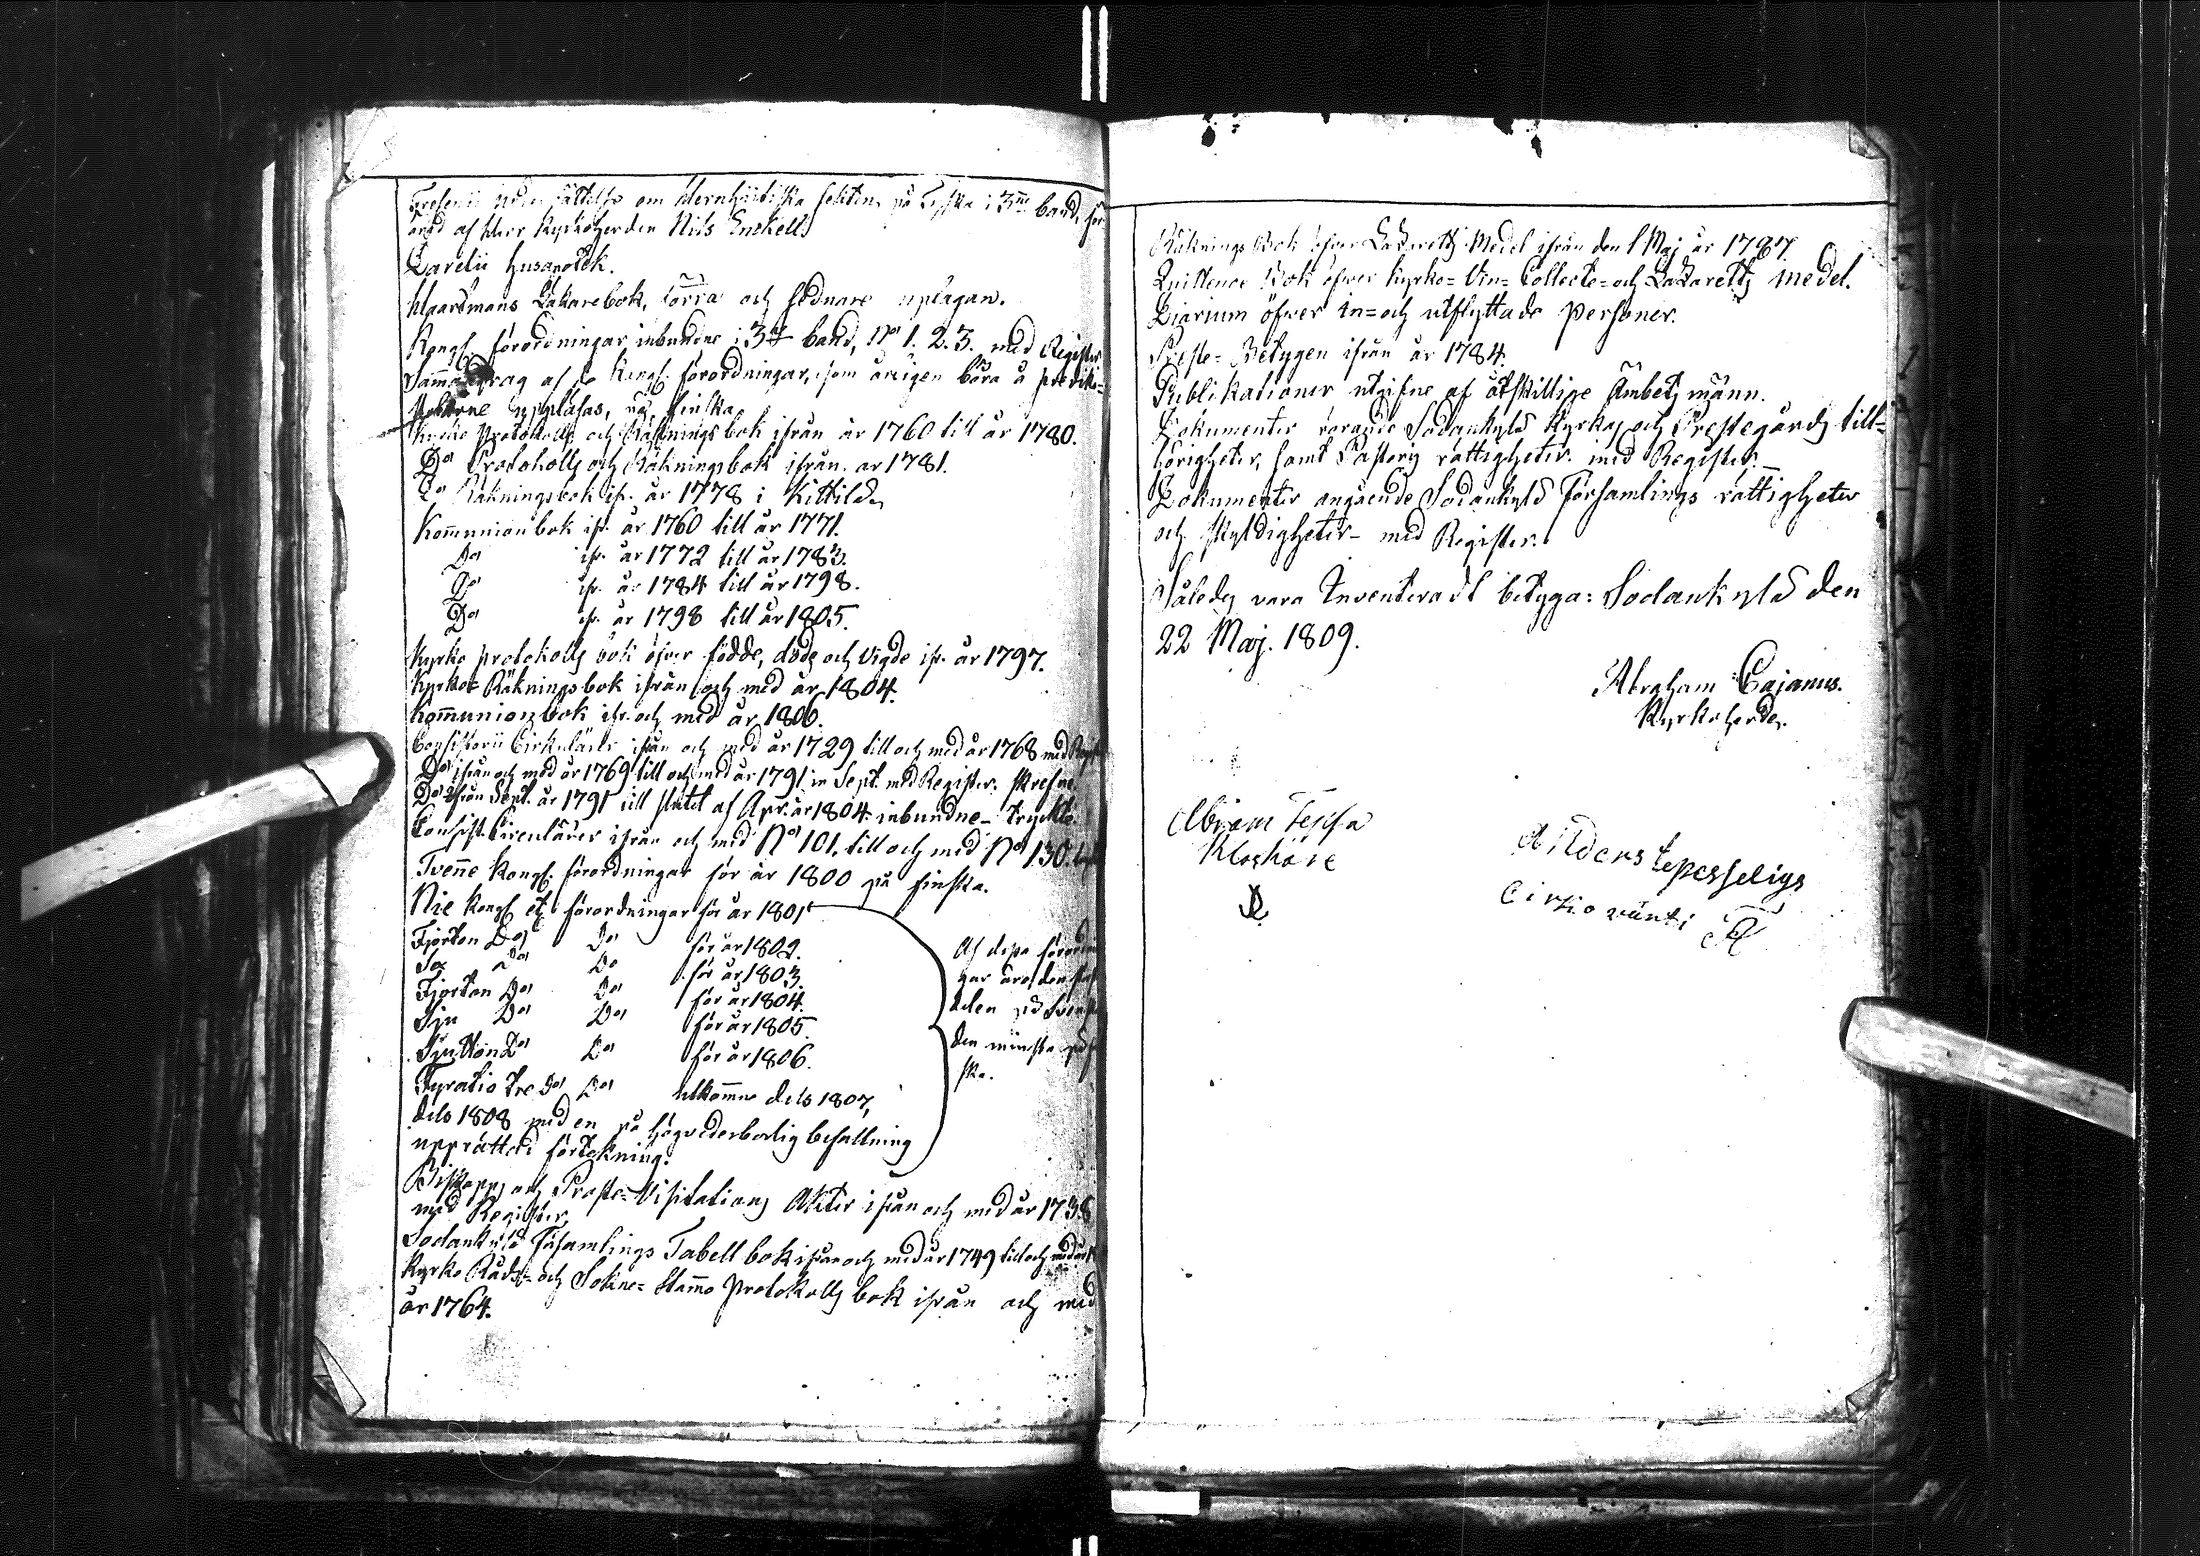 om Hernhutiska Sekten på Tyska i 3ne band,
af Herr Kyrkoherden Nils Enckell
Darelii Husapotek.
Haartmans Läkarebok, förra och sednare uplagan.
Kongl. förordningar inbundne i 3ne band, No 1. 2. 3. med Register
Sammandrag af Kongl. förordningar, som årligen böra å prediko-
stolarne uppläsas, på finska
Kyrko Protokolls och Räkningsbok ifrån år 1760 till år 1780.
Do Protokolls och Räkningsbok ifrån år 1781.
Do Räkningsbok ifr. år 1778 i Kittilä
Kom̄unionbok ifr. år 1760 till år 1771.
Do ifr. år 1772 till år 1783.
Do ifr. år 1784 till år 1798.
Do ifr. år 1798 till år 1805.
Kyrko protokolls bok öfver födde, döde och vigde ifr. år 1797.
Kyrko Räkningsbok ifrån och med år 1804.
Kom̄unionbok ifr. och med år 1806.
Consistorii Cirkulärer ifrån och med år 1729 till och med år 1768 med
Do ifrån och med år 1769 till och med år 1791 in Sept. med Register. skrefne.
Do ifrån Sept. år 1791 till slutet af Apr. år 1804 inbundne - tryckte.
Consist. Circulärer ifrån och med No 101. till och med No 130.
Tven̄e Kongl. förordningar för år 1800 på finska.
Nie Kongl. förordningar för år 1801
Fjorton Do Do för år 1802.
Sex Do Do för år 1803.
Fjorton Do Do för år 1804.
Sju Do Do för år 1805.
Sjutton Do Do för år 1806.
Fyratio tre Do Do utkom̄ne dels 1807,
dels 1808 med en på högvederbörlig befallning
upprättad förtekning.
Af dessa
gar äro den
delen på
den minsta på
ska.
Biskopps och Proste-Visitations Akter ifrån och med år 1738
med Register
Sodankylä Församlings Tabell bok ifrån och med år 1749 till och med
Kyrko Råds- och Sokne-Stäm̄o Protokolls bok ifrån och med
år 1764.
Räknings Bok öfver Lazaretts Medel ifrån den 1 Maj år 1787.
Quittence Bok öfver Kyrko- Vin- Collecte- och Lazaretts medel.
Diarium öfver in- och utflyttade personer.
Preste-Betygen ifrån år 1784.
Publikationer utgifne af åtskillige Ämbetsmänn.
Dokumenter rörande Sodankylä Kyrkas och Prestegårds till-
hörigheter, samt Pastoris rättigheter med Register.
Dokumenter angående Sodankylä Församlings rättigheter
och skyldigheter - med Register.
Således vara Inventeradt betyga: Sodankylä den
22 Maj. 1809.
Abraham Cajanus.
Kyrkoherde.
Abram